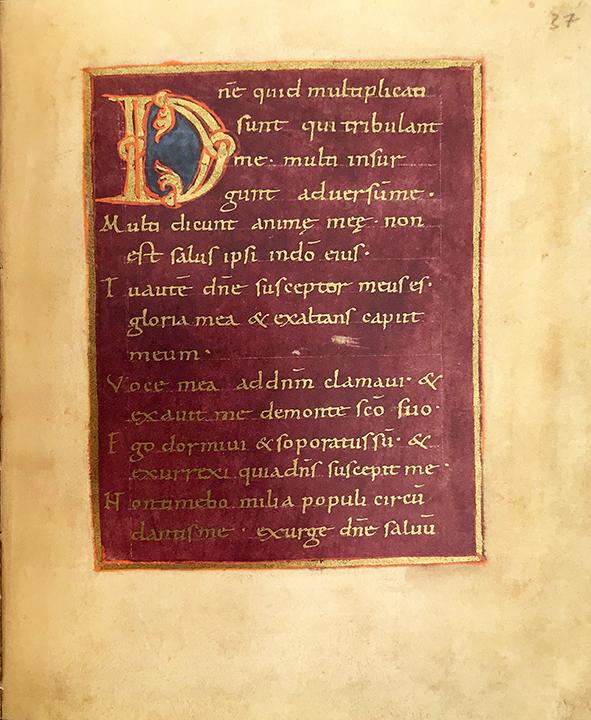 37
Dnē quid multiplicati
sunt qui tribulant
me· multi insur
gunt adversūme·
Multi dicunt animę męę· non
est salus ipsi indō eius·
Tuautē dn̄e susceptor meus es·
gloria mea & exaltans caput
meum·
Voce mea addn̄m clamavi· &
exauit me demonte scō suo·
Ego dormiui & soporatus sū· &
exurrexi quia dn̄s suscepit me·
Nontimebo milia populi circū
dantis me· exurge dn̄e saluū